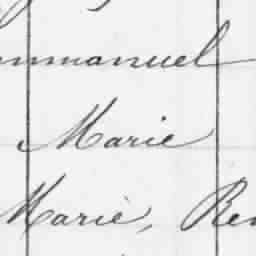 mmanuel
Marie
Marie, Ren